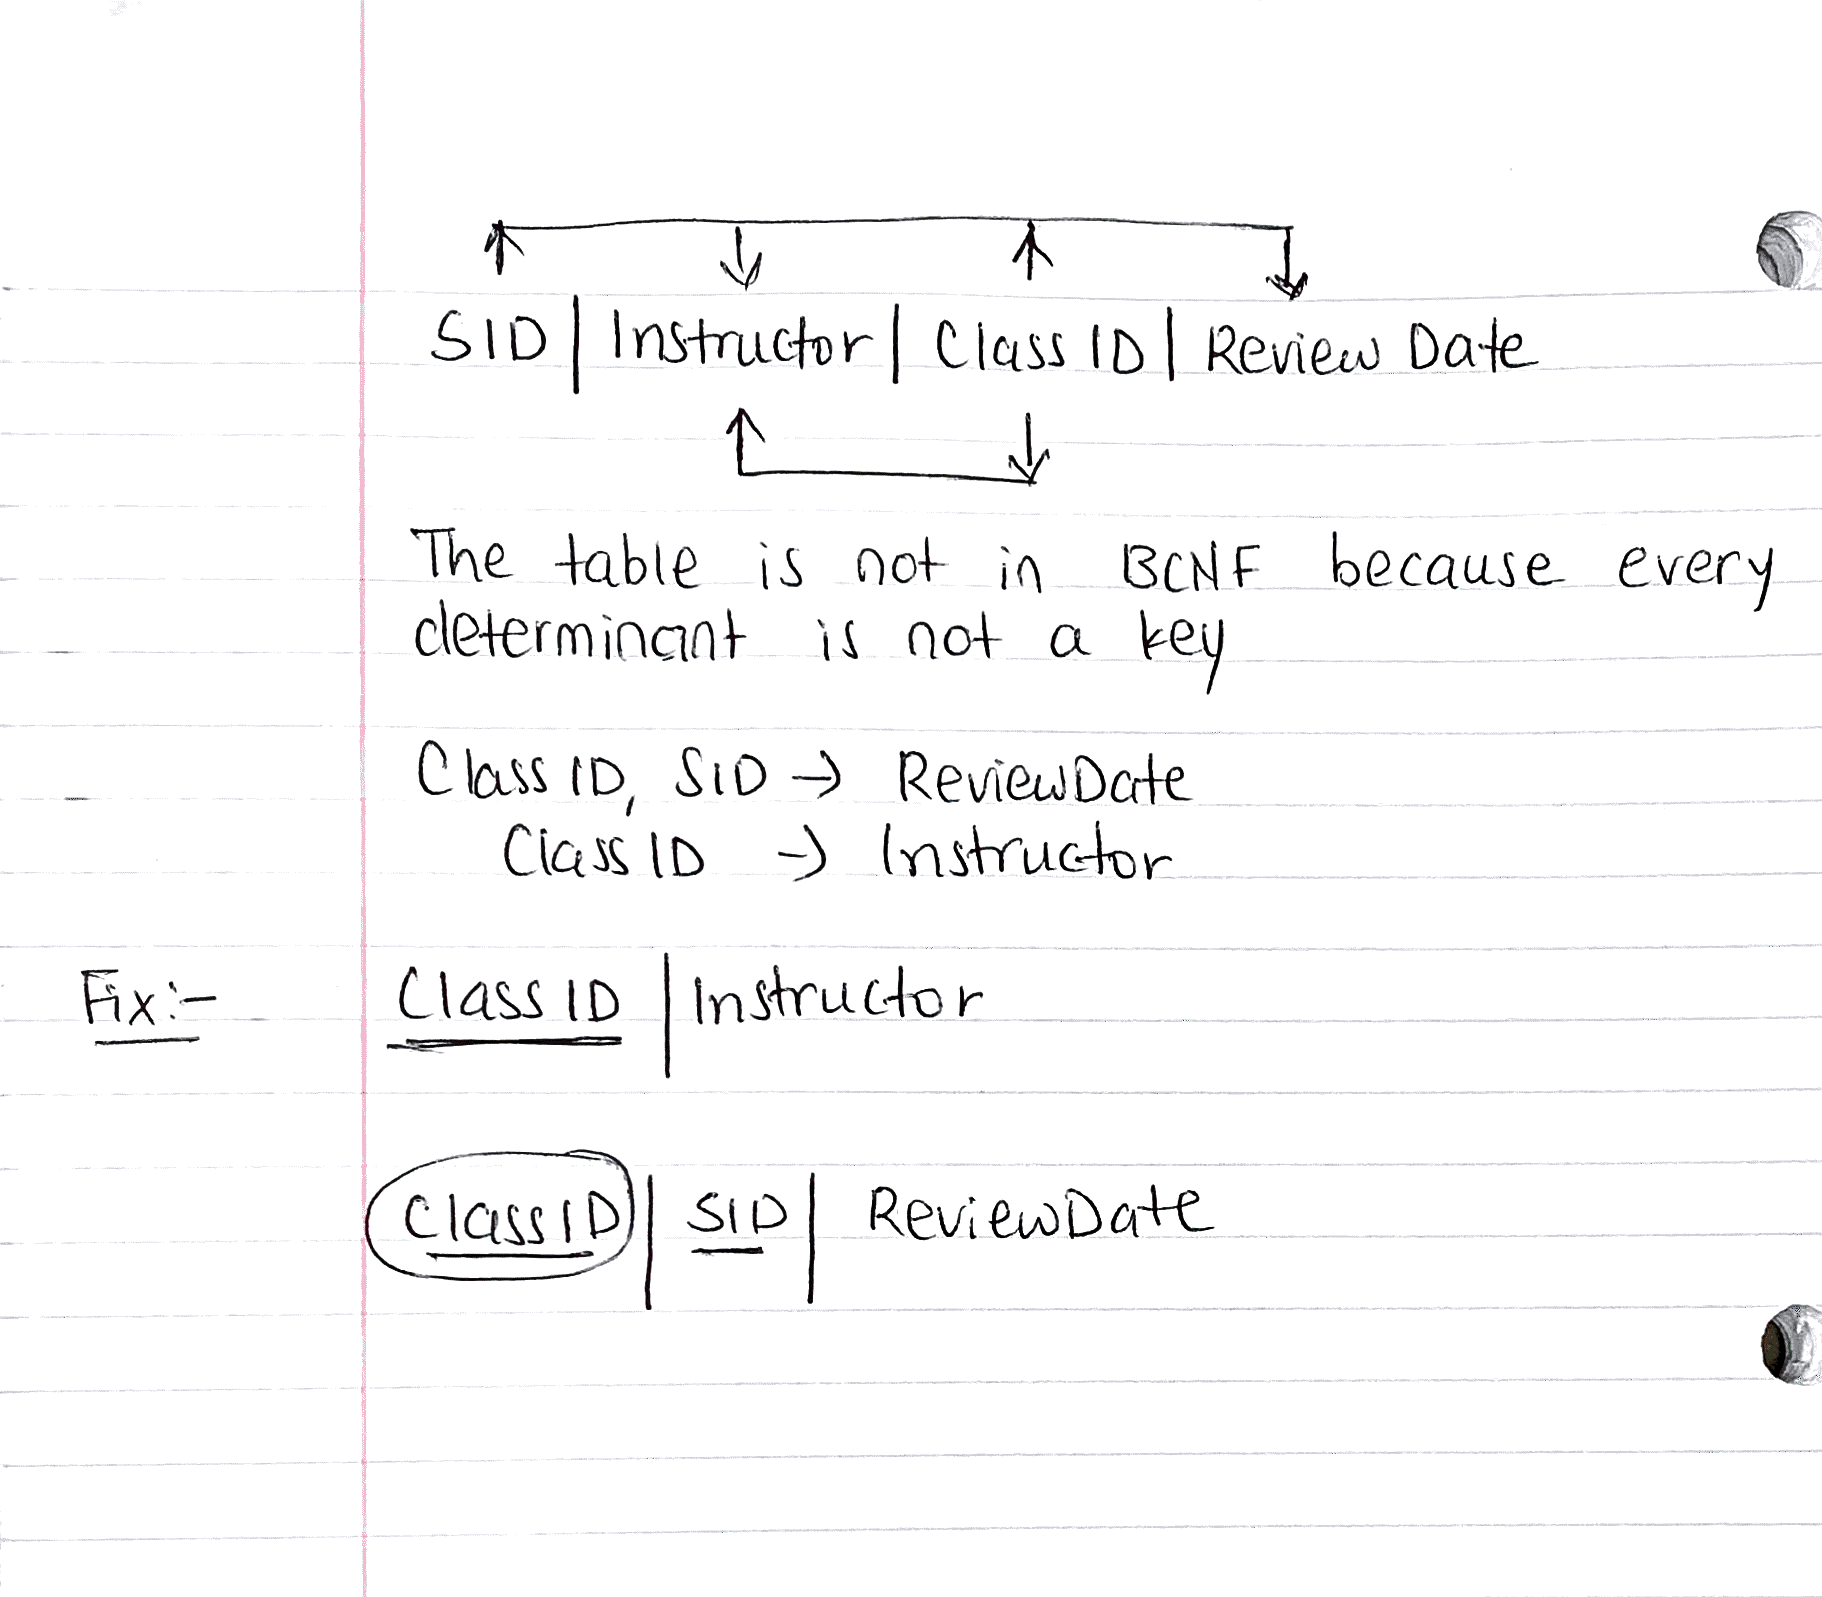 SID | Instructor | Class ID | Review Date
The table is not in BCNF because every
determinant is not a key
Class ID, SID → ReviewDate
Class ID → Instructor
Fix:- Class ID | Instructor
Class ID | SID | ReviewDate